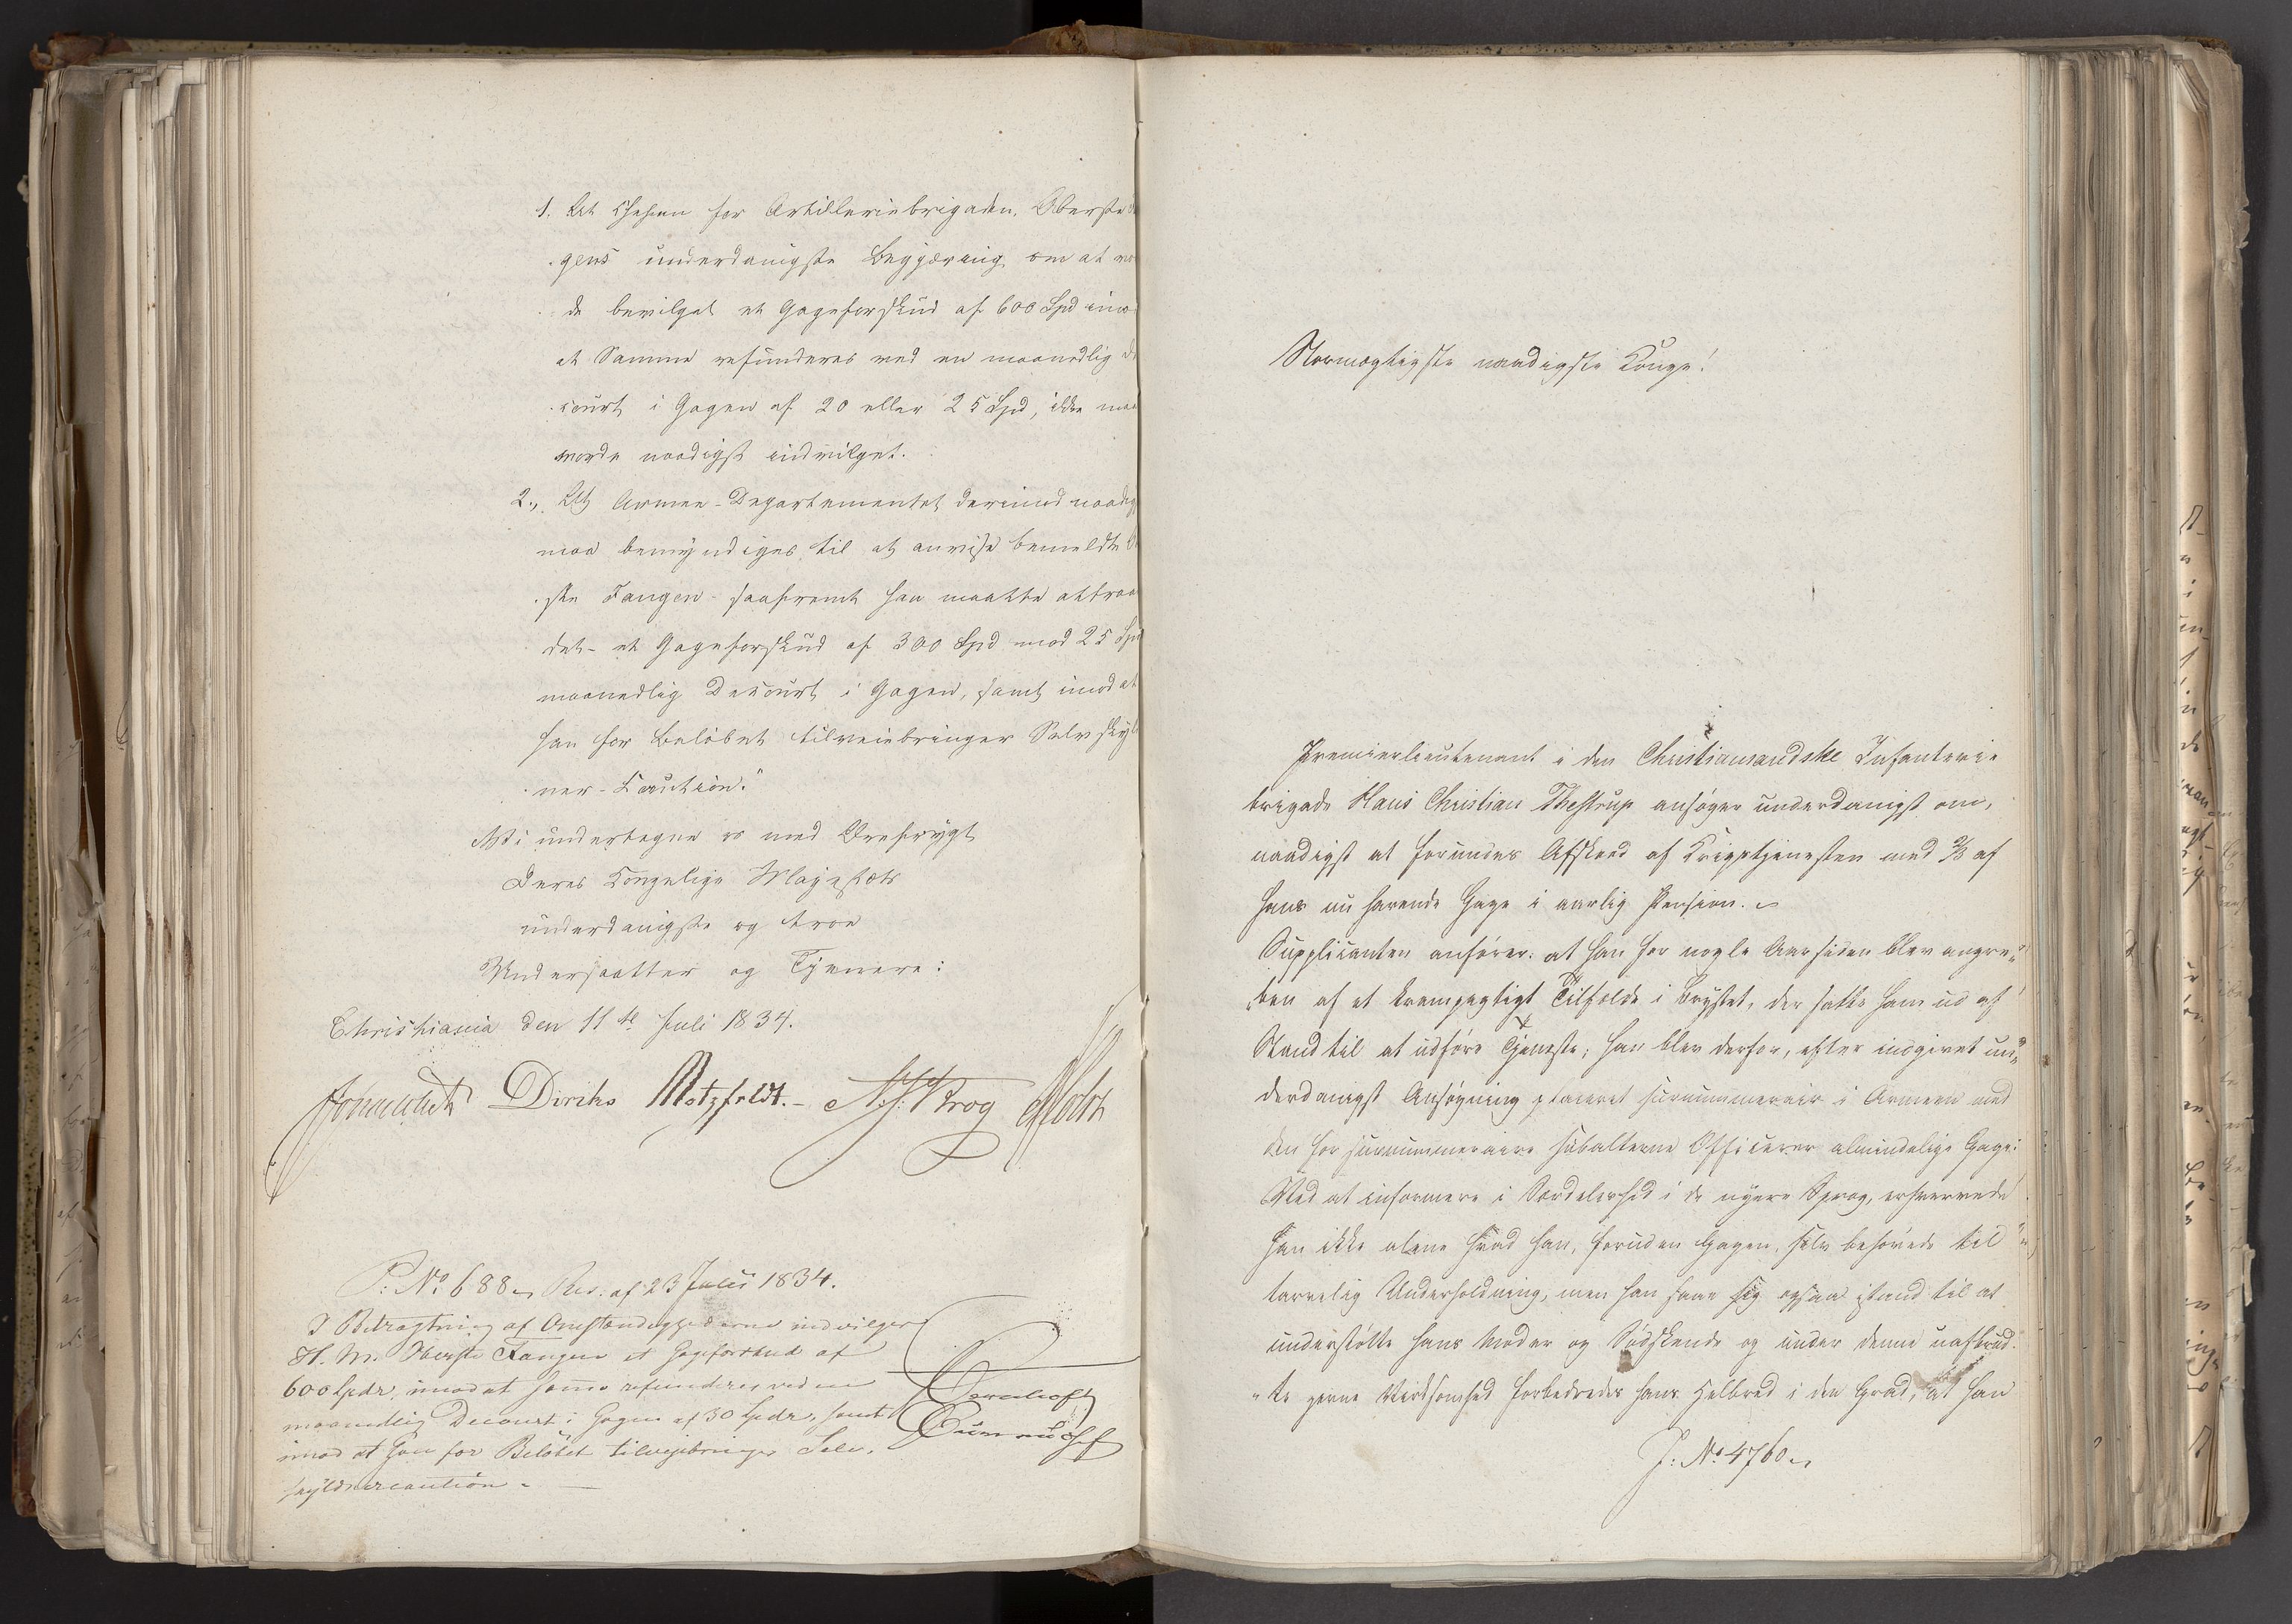 1. At Chefen for Artilleriebrigaden, Oberste
gens underdanigste Begjæring om at
de bevilget et Gageforskud af 600 Spd imod
at Samme refunderes ved en maanedlig
court i Gagen af 20 eller 25 Spd, ikke maa
vorde naadigst indvilget.
2., At Armee-Departementet derimod naadigst
maa bemyndiges til at anvise bemeldte
ste Fangen - saafremt han maatte attraae
det - et Gageforskud af 300 Spd mod 25 Spd
maanedlig Decourt i Gagen, samt imod at
han for Beløbet tilveiebringer Selvskyld
ner-Caution."
Vi undertegne os med Ærefrygt
Deres Kongelige Majestæts
underdanigste og troe
Undersaatter og Tjenere:
Christiania den 11te Juli 1834.
Diriks Motzfeldt. Krog Holst
P: No 688 Res: af 23 Julii 1834.
I Betragtning af Omstændighederne indvilger
H. M. Oberste Fangen et Gageforskud af
600 Spdr, imod at samme refunderes ved en
maanedlig Decourt i Gagen af 30 Spdr, samt
imod at han for Beløbet tilvejebringer Selv-
skyldnercaution.
Stormægtigste naadigste Konge!
Premierlieutenant i den Christiansandske Infanterie
brigade Hans Christian Thestrup ansøger underdanigst om,
naadigst at forundes Afskeed af Krigstjenesten med 2/3 af
hans nu havende Gage i aarlig Pension.
Supplicanten anfører: at han for nogle Aar siden blev angre„
„ben af et krampagtigt Tilfælde i Brystet, der satte ham ud af
Stand til at udføre Tjeneste; han blev derfor, efter indgivet un„
derdanigst Ansøgning placeret surnummerair i Armeen med
den for surnummeraire subalterne Officerer almindelige Gage:
Ved at informere i Særdeleshed i de nyere Sprog, erhvervede
han ikke alene hvad han, foruden Gagen, selv behøvede til
tarvelig Underholdning, men han saae sig ogsaa istand til at
understøtte hans Moder og Sødskende og under denne uafbrud-
„te Virksomhed forbedredes hans Helbred i den Grad, at han
J: No 4760